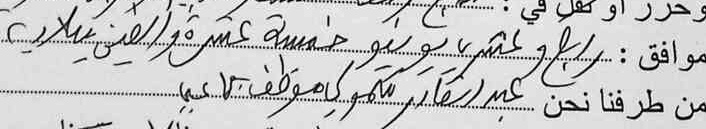 وحرر او نقل في :
موافق : رابع وعشرين يونيو خمسة عشرة والفين ميلادية
من طرفنا نحن عبد القادر موظف